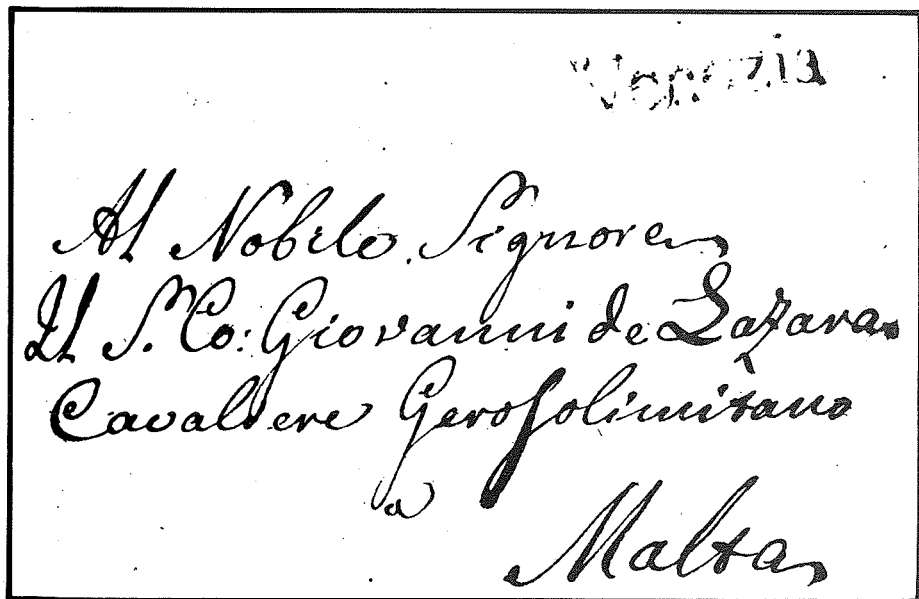 Venezia
Al Nobile Signore
Il S. Co: Giovanni de Lazara
Cavaliere Gerosolimitano
a
Malta